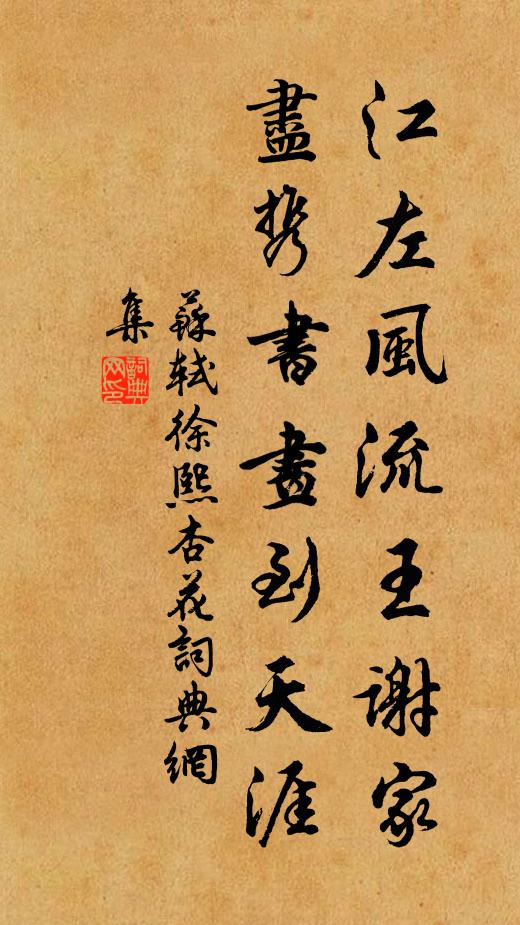 江左風流王謝家
盡携書畫到天涯
蘇軾徐熙杏花詞典網
集
詞典
网印